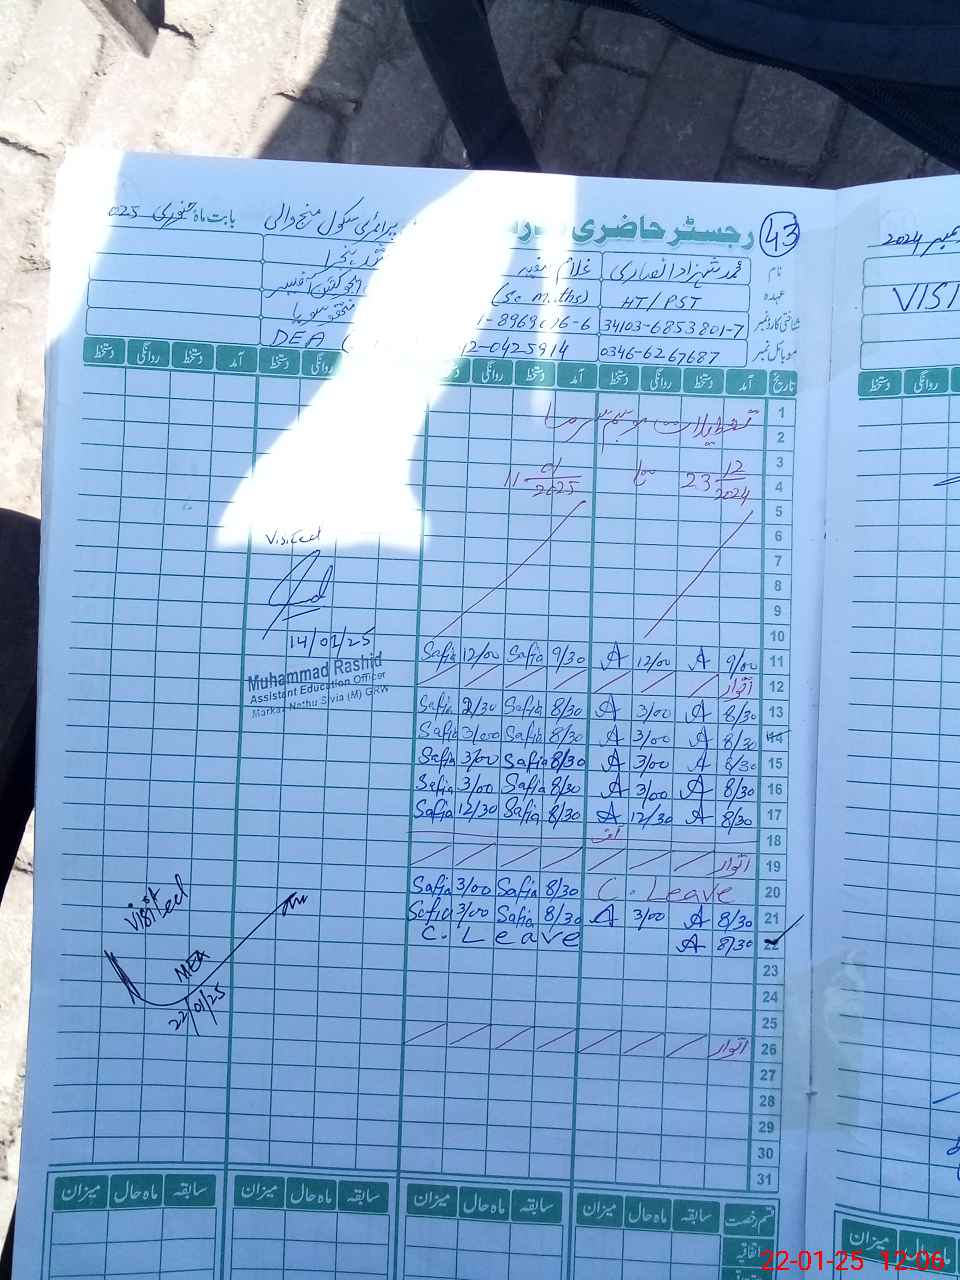 43 رجسٹر حاضری
بابت ماہ جنوری 025
پرائمری سکول
2024
نام محمد شہزاد انصاری غلام
VISI
عہدہ HT/PST
شناختی کارڈ نمبر 34103-6853801-7
موبائل نمبر 0346-6267687 0425914
DEA
تاریخ آمد دستخط روانگی دستخط آمد دستخط روانگی روانگی دستخط آمد دستخط روانگی دستخط
دستخط روانگی
1 تعطیلات موسم سرما
2
3
4 23 12/2024 تا 11 01/2025
5
6
Visited
7
8
9
10
14/01/25
11 9/00 A 12/00 A 9/30 Safia 12/00 Safia
Muhammad Rashid
Assistant Education Officer
Markaz Nathu Sivia (M) GRW
12 اتوار
13 8/30 A 3/00 A 8/30 Safia 2/30 Safia
14 8/30 A 3/00 A 8/30 Safia 3/00 Safia
15 8/30 A 3/00 A 8/30 Safia 3/00 Safia
16 8/30 A 3/00 A 8/30 Safia 3/00 Safia
17 8/30 A 12/30 A 8/30 Safia 12/30 Safia
18
19 اتوار
20 C. Leave 8/30 Safia 3/00 Safia
21 8/30 A 3/00 A 8/30 Safia 3/00 Safia
22 8/30 A C. Leave
Visited
MEA
22/01/25
23
24
25
26 اتوار
27
28
29
30
31
قسم رخصت سابقہ ماہ حال میزان سابقہ ماہ حال میزان سابقہ ماہ حال میزان سابقہ ماہ حال میزان
ماہ حال میزان
اتفاقیہ
22-01-25 12:06